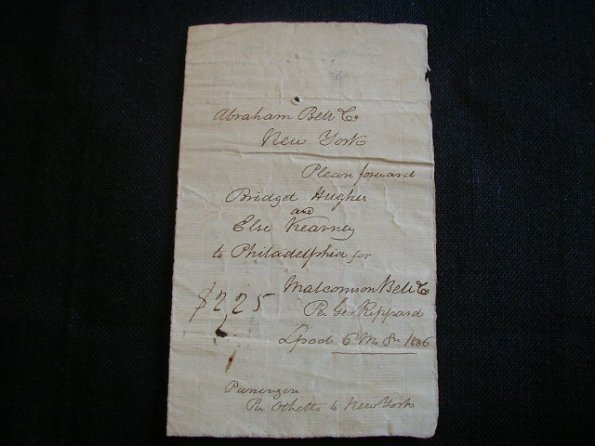 Abraham Bell & Co
New York
Please forward
Bridget Hughes
and
Else Kearney
to Philadelphia for
Malcomson Bell & Co
$2,25
Per Geo Rippard
Lpool 6th Mo 8th 1836
Passengers
Per Othello to New York